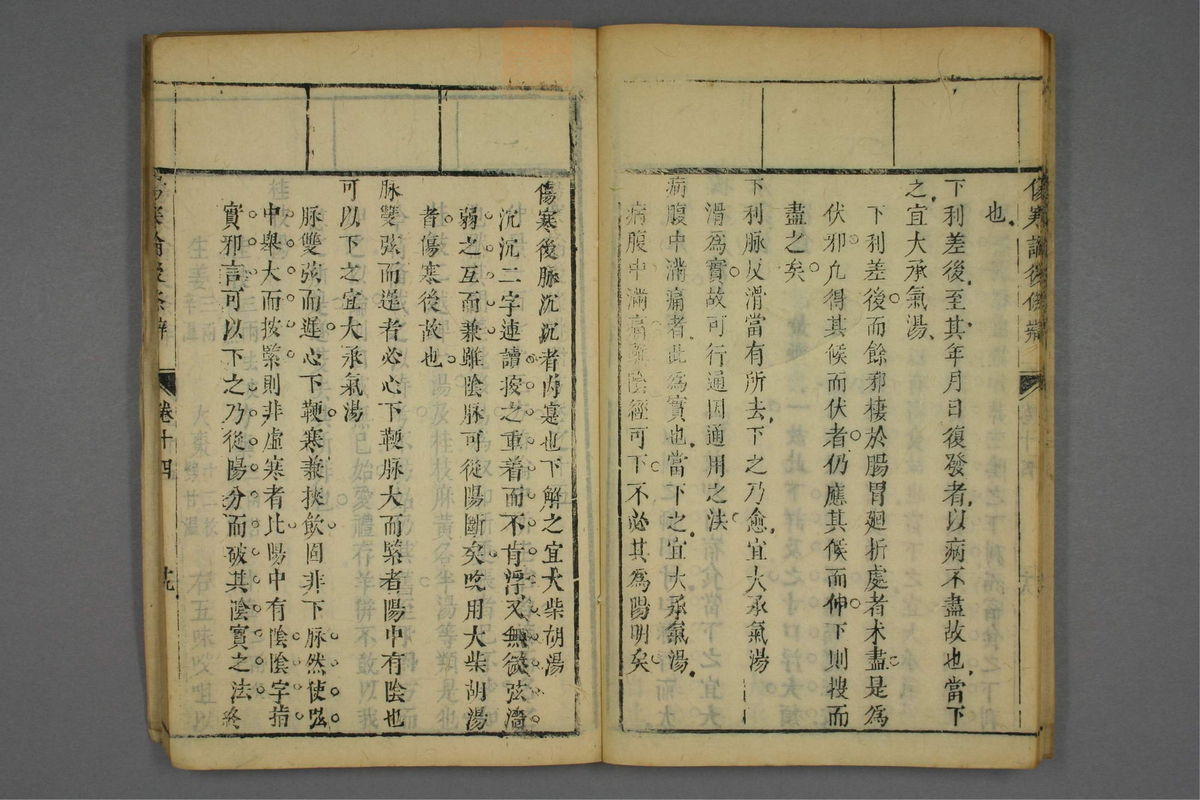 傷寒論後條辨
也
下利差後至其年月日復發者以病不盡故也當下
之宜大承氣湯
下利差後而餘邪棲於腸胃廻折處者未盡是為
伏邪凢得其候而伏者仍應其候而伸下則搜而
盡之矣
下利脉反滑當有所去下之乃愈宜大承氣湯
滑為實故可行通因通用之法
病腹中滿痛者此為實也當下之宜大承氣湯
病腹中滿痛雖陰經可下不必其為陽明矣
傷寒後脉沉沉者内寔也下解之宜大柴胡湯
沉沉二字連讀按之重着而不肯浮又無微弦濇
弱之互而兼雖陰脉可從陽斷矣吃用大柴胡湯
者傷寒後故也
脉雙弦而遲者必心下鞕脉大而緊者陽中有陰也
可以下之宜大承氣湯
脉雙弦而遲心下鞕寒兼挾飲固非下脉然使弦
中舉大而按緊則非虛寒者比陽中有陰陰字指
實邪言可以下之乃從陽分而破其陰實之法終
傷寒論後条辨
卷十四